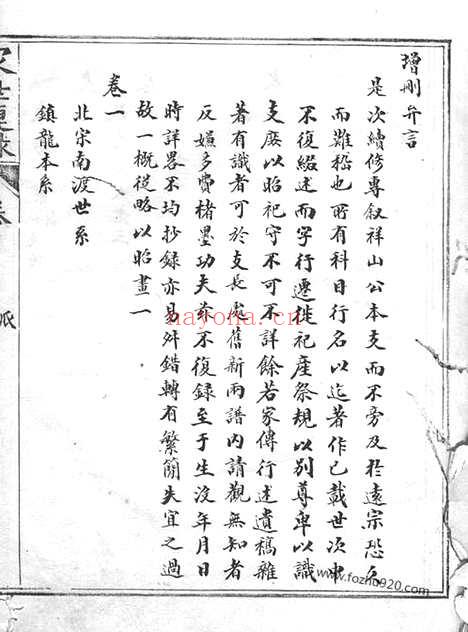 增刪弁言
是次續修專叙祥山公本支而不旁及於遠宗恐久
而難稽也所有科目行名以迄著作已載世次中
不復綴述而字行遷徙祀產祭規以別尊卑以識
支廢以昭祀守不可不詳餘若家傳行述遺稿雜
著有識者可於支長處舊新兩譜內請觀無知者
反嫌多費楮墨功夫茲不復錄至于生沒年月日
時詳畧不均抄錄亦易舛錯轉有繁簡失宜之過
故一概從略以昭畫一
卷一
北宋南渡世系
鎮龍本系
派
nayona.cn
www.fozhu920.com